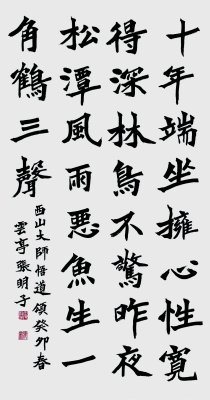 十年端坐擁心性寬
得深林鳥不驚昨夜
松潭風雨悪魚生一
角鶴三聲
西山大師悟道頌癸卯春
雲亭張明子